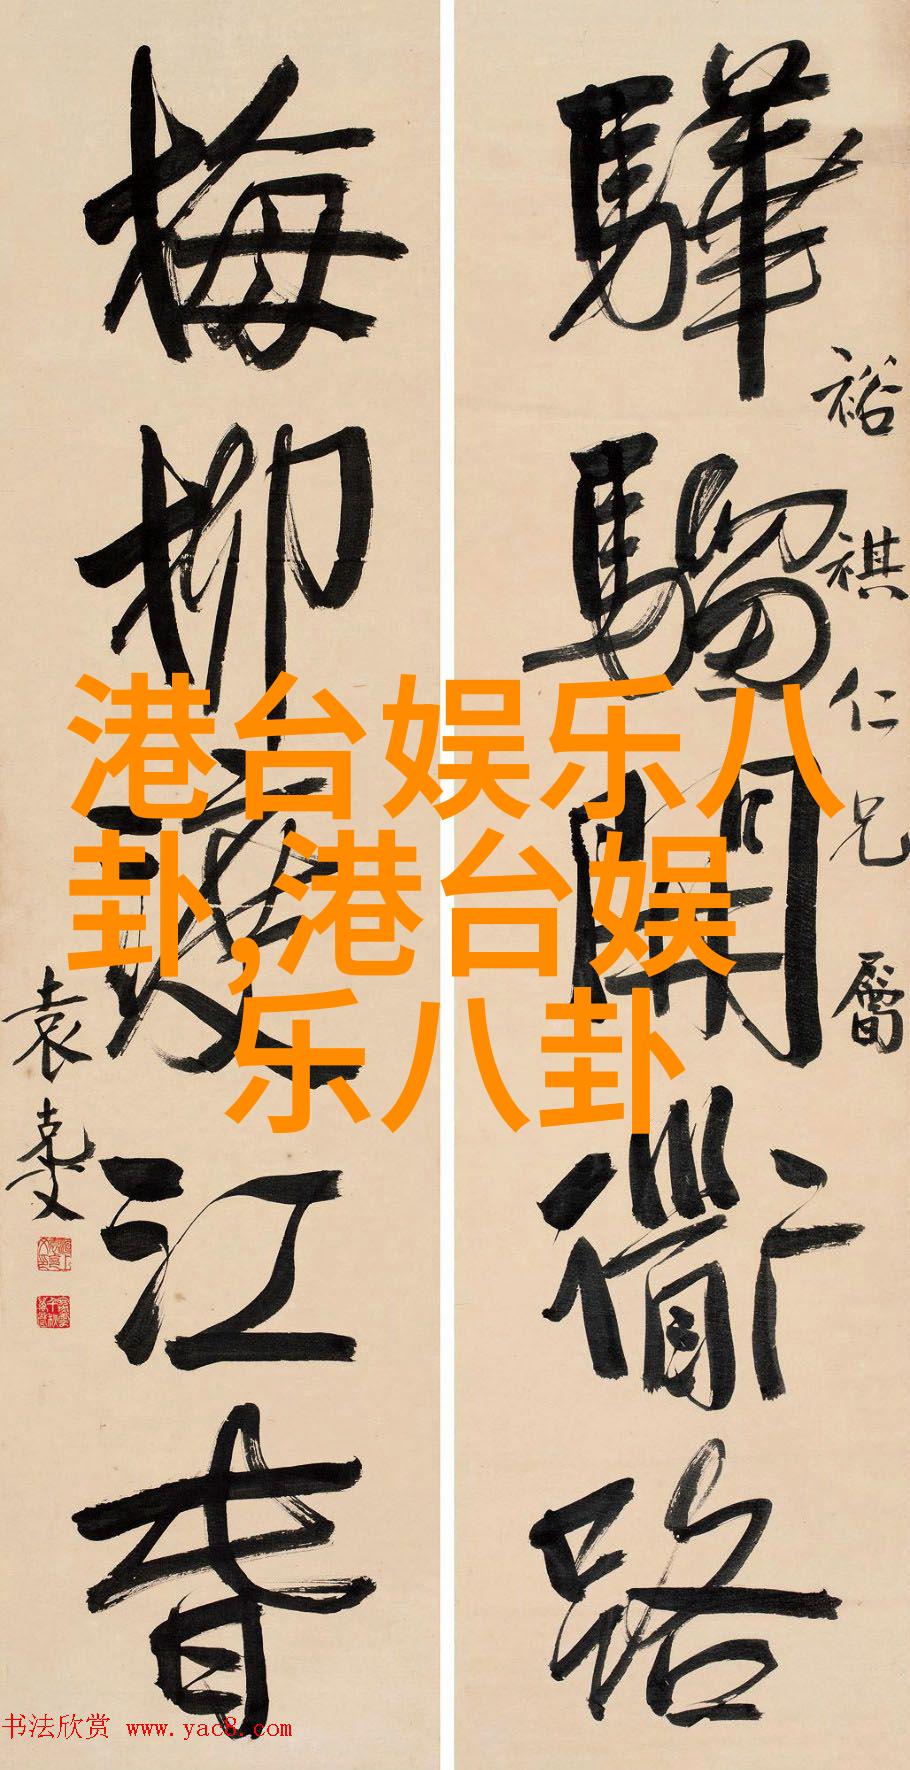 驊騮開衜路
裕祺仁兄屬
梅柳渡江春
袁克文
港台娱乐八
卦,港台娱
乐八卦
书法欣赏 www.yac8.com